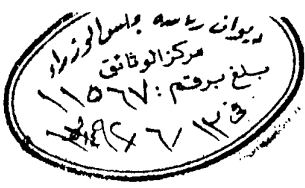 ديوان رياسة مجلس الوزراء
مركز الوثائق
بلغ برقم : ١١٥٦٧
في ١٣ / ٦ / ٩٢